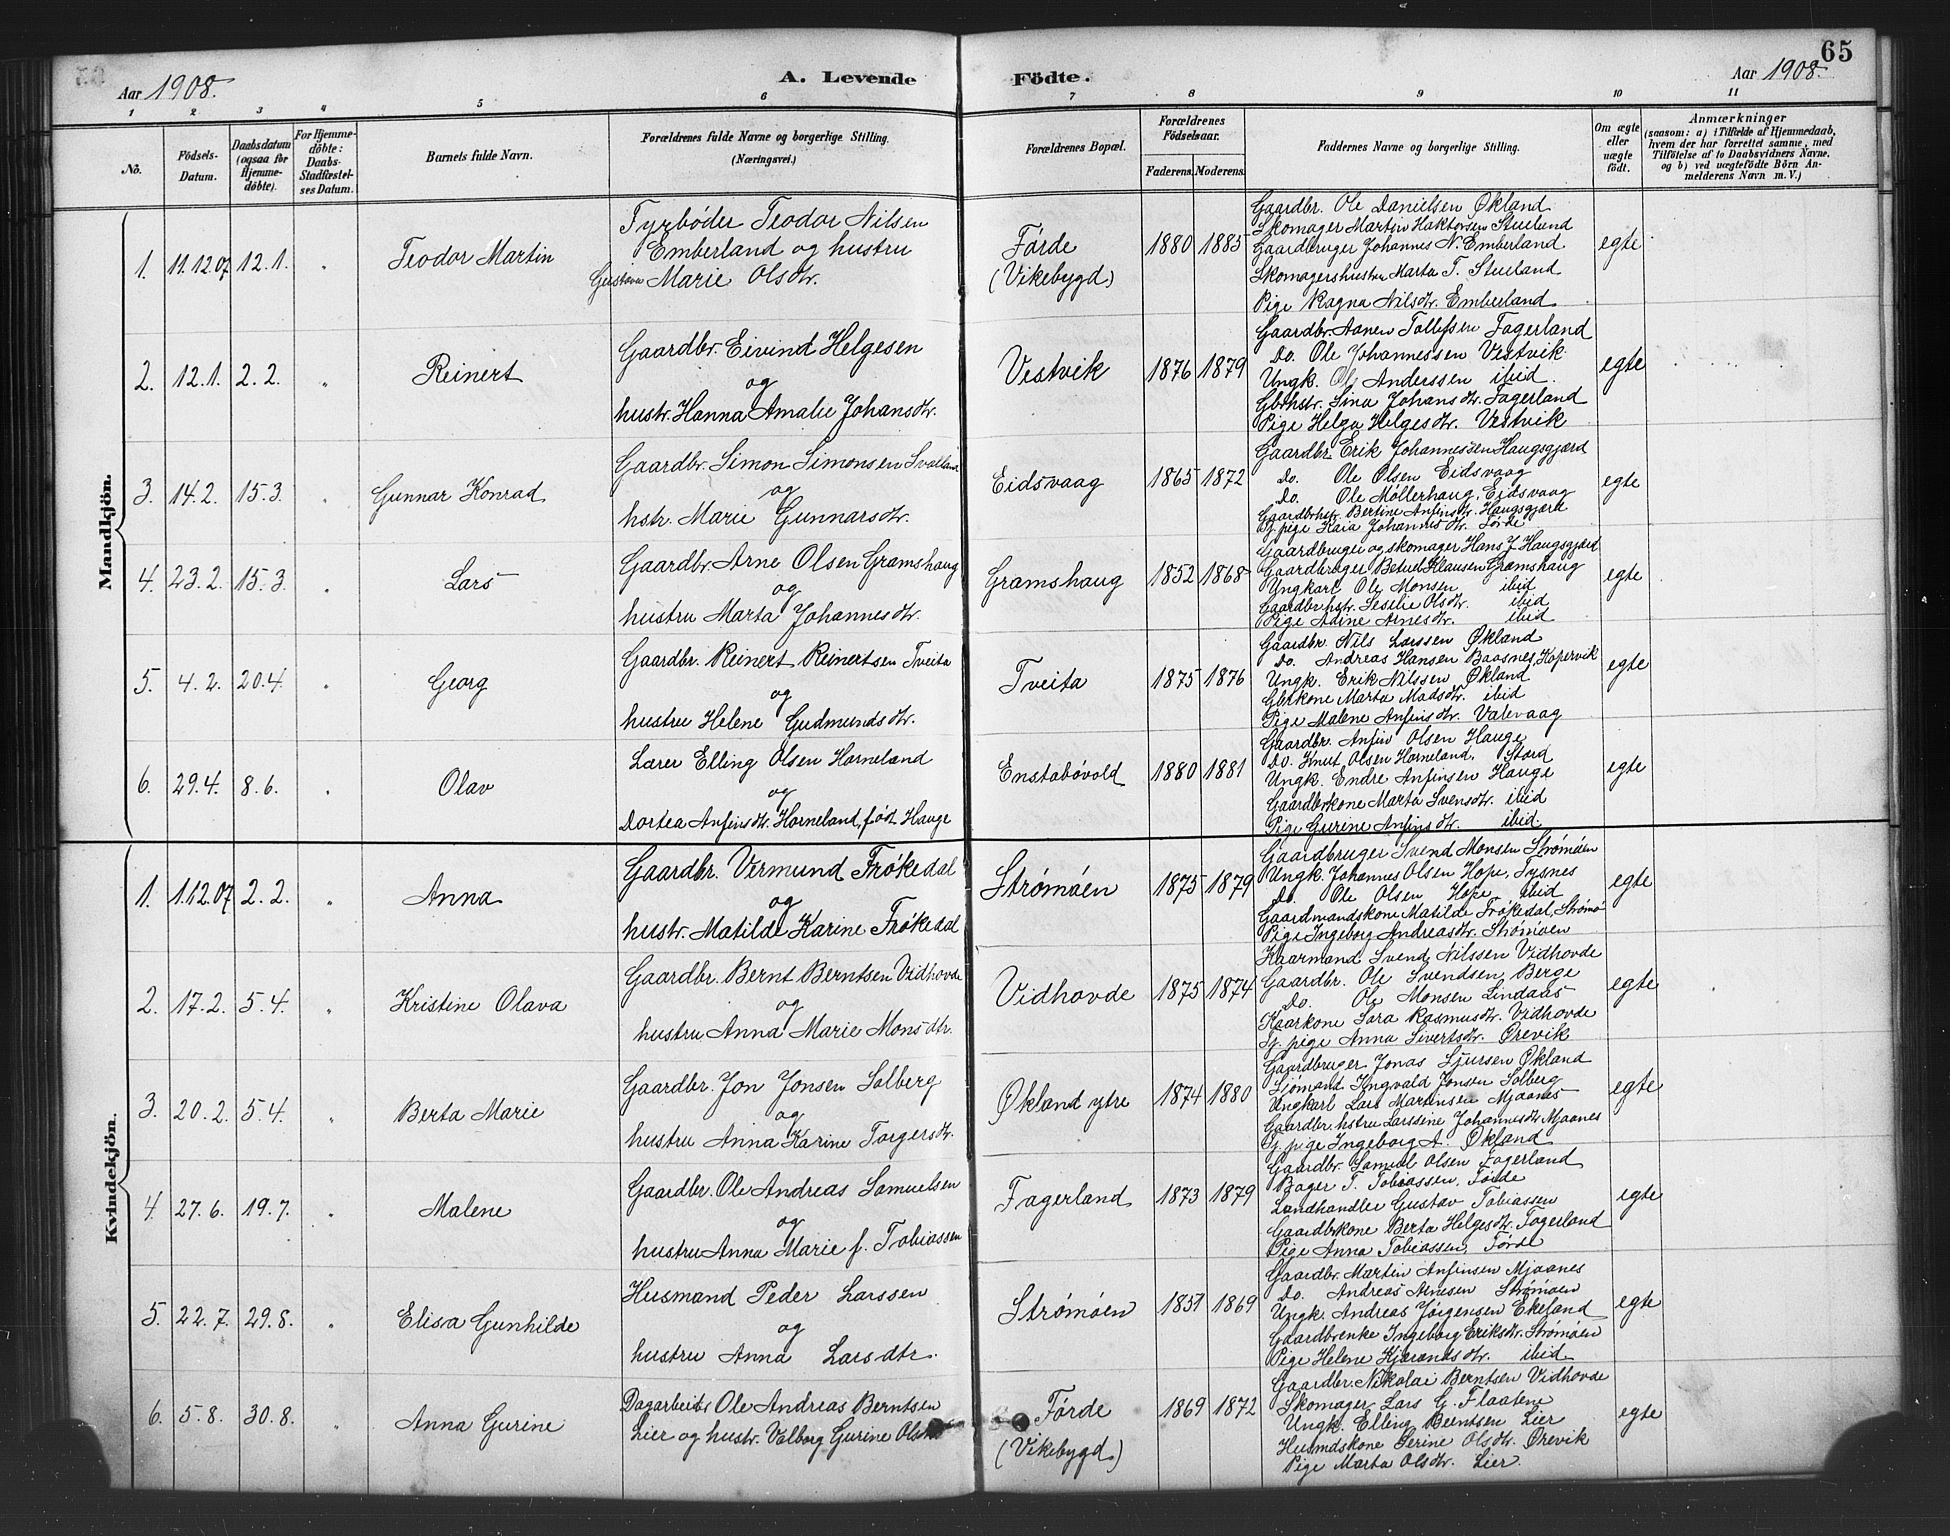 65
Aar 1908.
A. Levende
Födte.
Aar 1908.
1 2 3 4 5 6 7 8 9 10 11
No.
Födsels-Datum.
Daabsdatum (ogsaa for Hjemme-döbte).
For Hjemme-döbte: Daabs-Stadfæstel-ses Datum.
Barnets fulde Navn.
Forældrenes fulde Navne og borgerlige Stilling. (Næringsvei.)
Forældrenes Bopæl.
Forældrenes Födselsaar.
Faderens. Moderens.
Faddernes Navne og borgerlige Stilling.
Om ægte eller uægte födt.
Anmærkninger
(saasom: a) i Tilfælde af Hjemmedaab, hvem der har forrettet samme, med Tilföielse af to Daabsvidners Navne, og b) ved uægtefödte Börn Anmelderens Navn m. V.)
Mandkjön.
1. 11.12.07 12.1. " Teodor Martin
Fyrbøder Teodor Nilsen
Emberland og hustru
Gustava Marie Olsdtr.
Førde
(Vikebygd)
1880 1885
Gaardbr. Ole Danielsen Økland
Skomager Martin Haktorsen Stueland
Gaardbruger Johannes N. Emberland
Skomagershustru Marta T. Stueland
Pige Ragna Nilsdtr. Emberland
egte
2. 12.1. 2.2. " Reinert
Gaardbr. Eivind Helgesen
og
hustr. Hanna Amalie Johansdtr.
Vestvik
1876 1879
Gaardbr. Aanen Tollefsen Fagerland
Do. Ole Johannessen Vestvik
Ungk. Ole Anderssen ibid.
Gbrhstr. Sina Johansdtr. Fagerland
Pige Helga Helgesdtr. Vestvik
egte
3. 14.2. 15.3. " Gunnar Konrad
Gaardbr. Simon Simonsen Svolland
og
hstr. Marie Gunnarsdtr.
Eidsvaag
1865 1872
Gaardbr. Erik Johannessen Haugsgjærd
Do. Ole Olsen Eidsvaag
Do. Ole Møllerhaug, Eidsvaag
Gaardbrhstr. Bertine Anfinsdtr. Haugsgjærd
Gj. pige Kaia Johannesdtr. Førde
egte
4. 23.2. 15.3. " Lars
Gaardbr. Arne Olsen Gramshaug
og
hustru Marta Johannesdtr.
Gramshaug
1852 1868
Gaardbruger og skomager Hans J. Haugsgjærd
Gaardbruger Betuel Klausen Gramshaug
Ungkarl Ole Monsen ibid
Gaardbrhstr. Seselie Olsdtr. ibid
Pige Adine Arnesdtr. ibid
egte
5. 4.2. 20.4. " Georg
Gaardbr. Reinert Reinertsen Tveita
og
hustru Helene Gudmundsdtr.
Tveita
1875 1876
Gaardbr. Nils Larssen Økland
Do. Andreas Hansen Baasnes, Kopervik
Ungk. Erik Nilssen Økland
Gbrkone Marta Madsdtr. ibid
Pige Malene Anfinsdtr. Valevaag
egte
6. 29.4. 8.6. " Olav
Lærer Elling Olsen Horneland
og
Dortea Anfinsdtr. Horneland, født Hauge
Enstabøvold
1880 1881
Gaardbr. Anfin Olsen Hauge
Do. Knut Olsen Horneland, Stord
Ungk. Endre Anfinsen Hauge
Gaardbrkone Marta Svensdtr. ibid
Pige Gurine Anfinsdtr. ibid.
egte
Kvindekjön.
1. 1.12.07 2.2. " Anna
Gaardbr. Vermund Frøkedal
og
hustr. Matilde Karine Frøkedal
Strømøen
1875 1879
Gaardbruger Svend Monsen Strømøen
Ungk. Johannes Olsen Hope, Tysnes
Do. Ole Olsen Hope, ibid
Gaardmandskone Matilde Frøkedal, Strømø
Pige Ingeborg Andreasdtr. Strømøen
egte
2. 17.2. 5.4. " Kristine Olava
Gaardbr. Bernt Berntsen Vidhovde
og
hustru Anna Marie Monsdtr.
Vidhovde
1875 1874
Kaarmand Svend Nilssen Vidhovde
Gaardbr. Ole Svendsen Berge
Do. Ole Monsen Lindaas
Kaarkone Sara Rasmusdtr. Vidhovde
Gj. pige Anna Sivertsdtr. Ørevik
egte
3. 20.2. 5.4. " Berta Marie
Gaardbr. Jon Jonsen Solberg
og
hustru Anna Karine Torgersdtr.
Økland ytre
1874 1880
Gaardbruger Jonas Sjursen Økland
Sjømand Ingvald Jonsen Solberg
Ungkarl Lars Martinsen Mjaanes
Gaardbr hstru Larssine Johannesdtr. Mjaanes
Gj. pige Ingeborg A. Økland
egte
4. 27.6. 19.7. " Malene
Gaardbr. Ole Andreas Samuelsen
og
hustru Anna Marie f. Tobiassen
Fagerland
1873 1879
Gaardbr. Samuel Olsen Fagerland
Bager T. Tobiassen, Førde
Landhandler Gustav Tobiassen
Gaardbrkone Berta Helgesdtr. Fagerland
Pige Anna Tobiassen, Førde
egte
5. 22.7. 29.8. " Elisa Gunhilde
Husmand Peder Larssen
og
hustru Anna Larsdtr.
Strømøen
1851 1869
Gaardbr. Martin Anfinsen Mjaanes
Do. Andreas Arnesen Strømøen
Ungk. Andreas Jørgensen Ekeland
Gaardbrenke Ingeborg Eriksdtr. Strømøen
Pige Helene Kjærandsdtr. ibid
egte
6. 5.8. 30.8. " Anna Gurine
Dagarbeider Ole Andreas Berntsen
Lier og hustr. Valborg Gurine Olsdtr.
Førde
(Vikebygd.)
1869 1872
Gaardbr. Nikolai Berntsen Vidhovde
Skomager Lars G. Flaatene
Ungk. Elling Berntsen Lier
Husmdskone Serine Olsdtr. Ørevik
Pige Marta Olsdtr. Lier.
egte